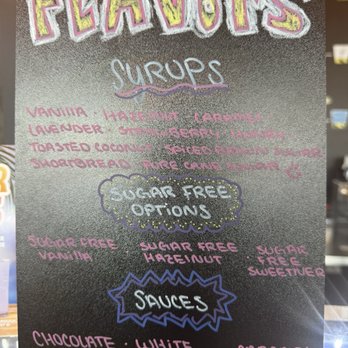 FLAVORS
SYRUPS
VANILLA · HAZELNUT · CARAMEL
LAVENDER · STRAWBERRY ·
TOASTED COCONUT · SPICED BROWN SUGAR
SHORTBREAD · PURE CANE SUGAR
SUGAR FREE
OPTIONS
SUGAR FREE VANILLA
SUGAR FREE HAZELNUT
SUGAR FREE SWEETNER
SAUCES
CHOCOLATE · WHITE